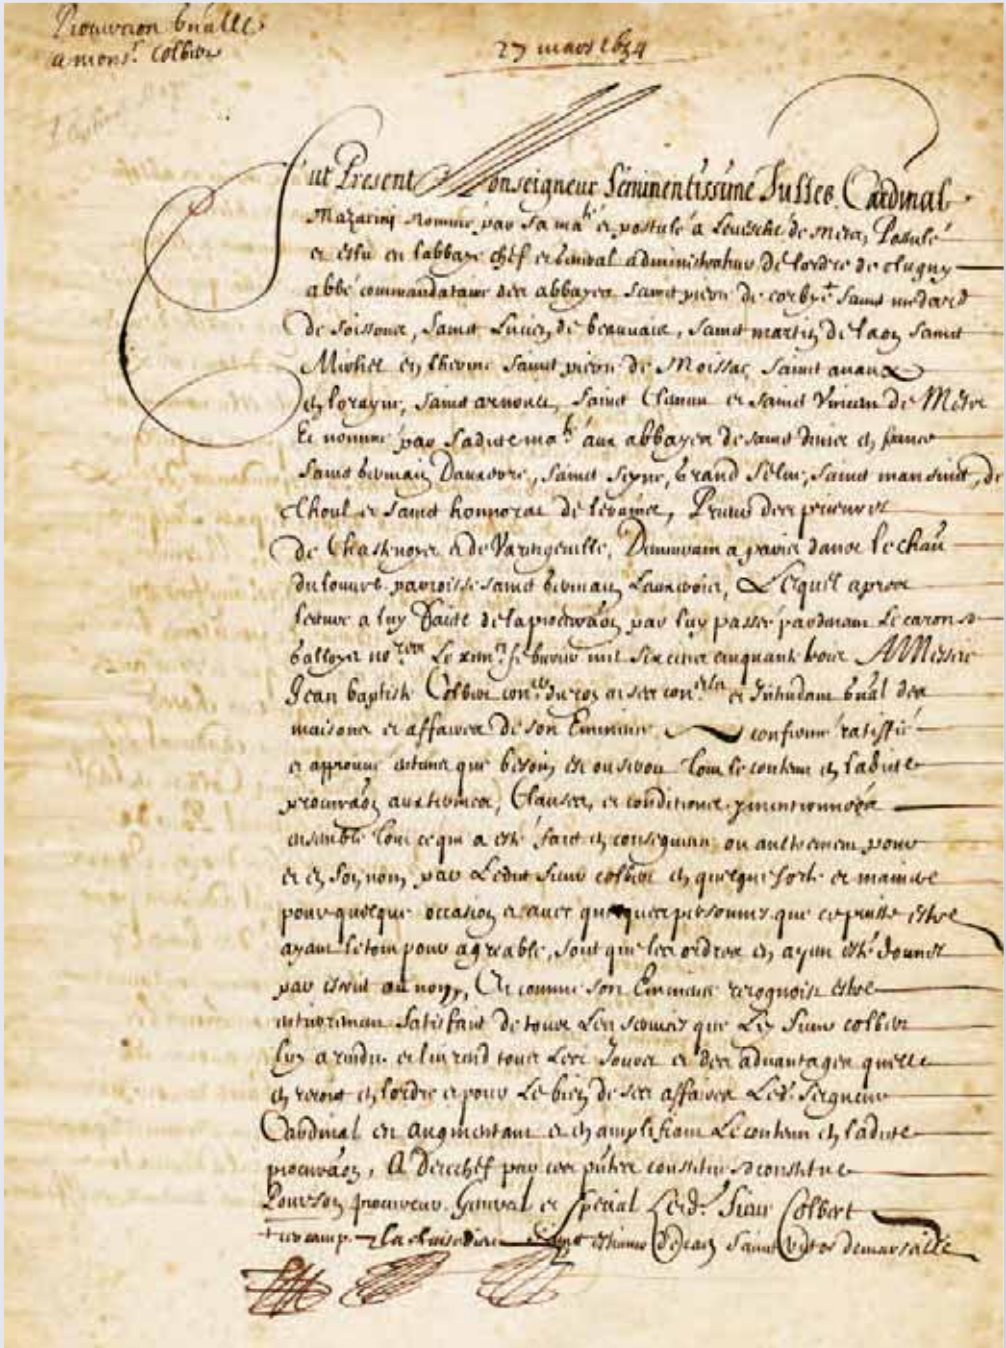 Procuration gñalle
a Monsr. Colbert
27 mars 1654
Fut Present Monseigneur Leminentissime Julles Cardinal
Mazarini nommé par sa mate et postulé a Levesché de Metz, Postulé
et eslu en labbaye chef et general administrateur de lordre de clugny
abbé commandataire des abbayes Sainct pierre de corbye Sainct medard
de Soissons, Sainct Lucien de beauvais, Sainct martin de laon Sainct
Michel en therme Sainct pierre de Moissac Sainct avaux
en lorayne, Sainct arnoul, Sainct Clemen et Sainct Vincent de Metz
Et nommé par Sadite mate aux abbayes de sainct denis en france
Sainct germain Dauxerre, Sainct Seyne, Grand Selve, Sainct mansuit, de
thoul et Sainct honnorat de lerains, Prieur des prieurés
de Chastenoyes et de Varengeville, Demeurant a paris dans le chau
du louvre parroisse sainct germain Lauxerrois, Lequel apres
lecture a luy Faite de la procuraon par luy passée pardevant Le caron et
galloys nores Le febvrier mil six cens cinquante trois A Messire
Jean baptiste Colbert coner du roy en ses conels et Intendant gñal des
maisons et affaires de son Eminence confirmé ratiffié
et approuvé entant que besoin est ou seroit tout le contenu en ladite
procuraon aux termes, Clauses, et conditions y mentionnées
ensemble tout ce qui a esté faict en consequence ou aultrement pour
et en son nom par Ledit sieur colbert en quelque sorte et maniere
pour quelque occasion et avec quelques personnes que ce puisse estre
ayant le tout pour agreable, soit que les ordres en ayent esté donnés
par escrit ou non, Et comme son Eminence recognoist estre
entierement satisfait de tous Les services que Led Sieur colbert
luy a rendu et luy rend tous Les Jours et des advantages quelle
en reçoit en lordre et pour Le bien de ses affaires Led. Seigneur
Cardinal en augmentant et en amplifiant Le contenu en ladite
procuraon, A Derechef par ces pñtes constitué et constitue
Pour son procureur General et Special Ledt. Sieur Colbert
Sainct estienne de Caen Sainct Victor de marseille